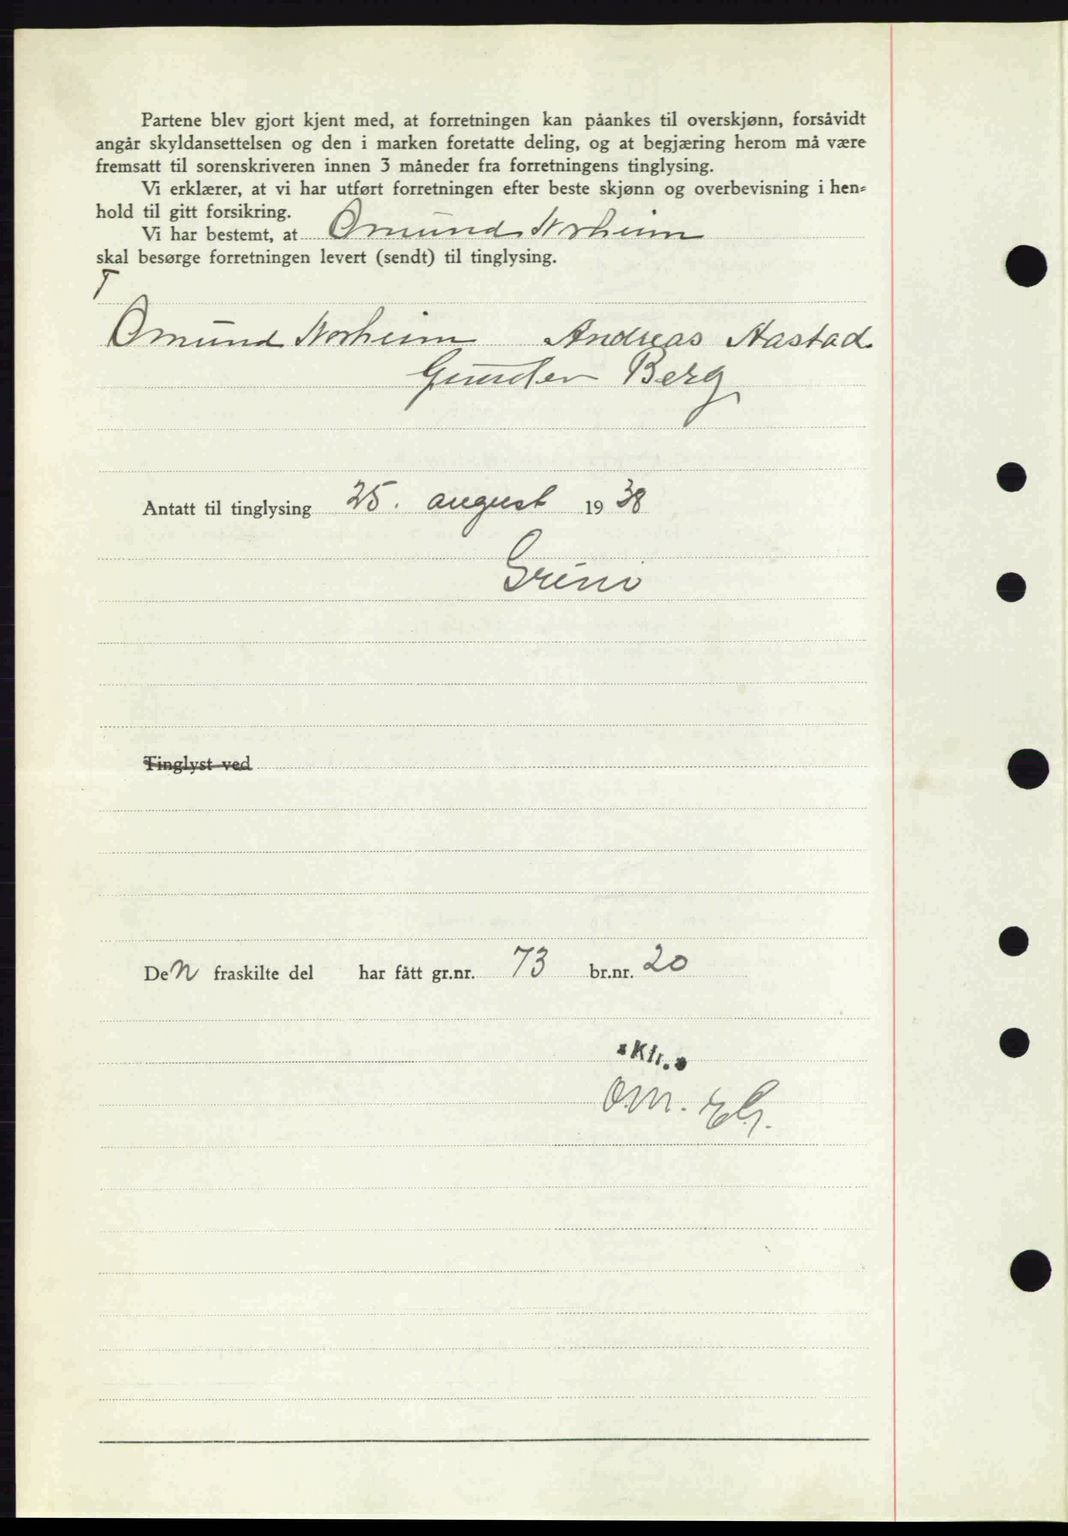 Partene blev gjort kjent med, at forretningen kan påankes til overskjønn, forsåvidt
angår skyldansettelsen og den i marken foretatte deling, og at begjæring herom må være
fremsatt til sorenskriveren innen 3 måneder fra forretningens tinglysing.
Vi erklærer, at vi har utført forretningen efter beste skjønn og overbevisning i hen=
hold til gitt forsikring.
Vi har bestemt, at Omund Norheim
skal besørge forretningen levert (sendt) til tinglysing.
Omund Norheim Andreas Aastad.
Gunder Berg
Antatt til tinglysing 25. august 1938
Greni
Tinglyst ved
Den fraskilte del har fått gr.nr. 73 br.nr. 20
O.M.